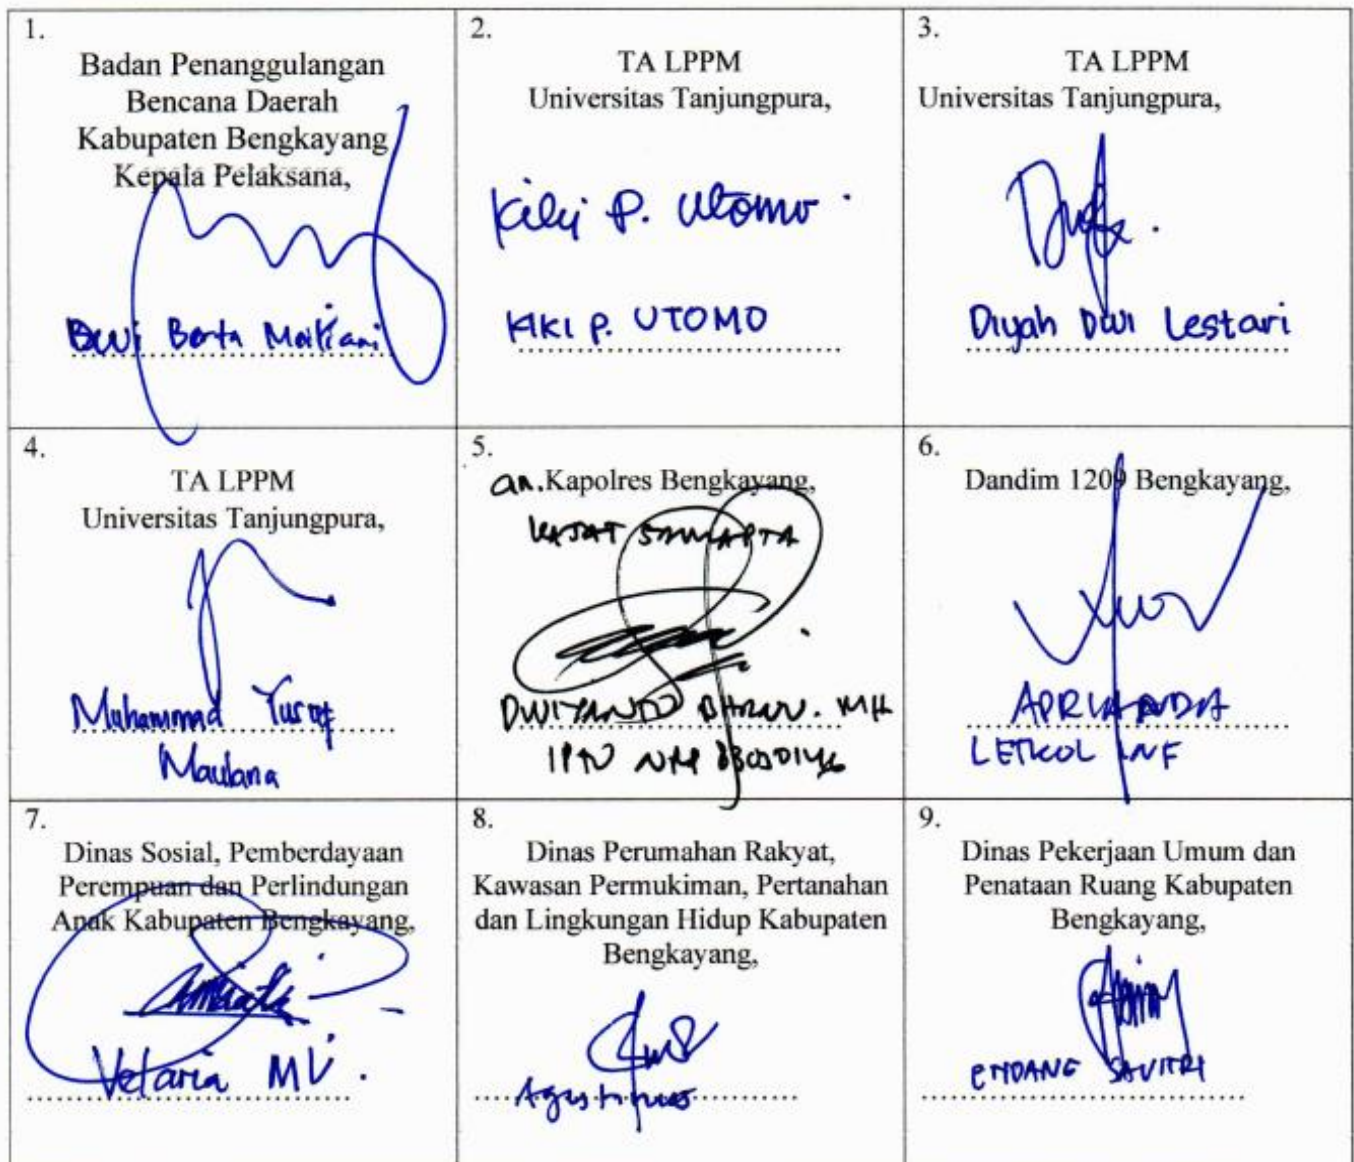 1.
Badan Penanggulangan
Bencana Daerah
Kabupaten Bengkayang
Kepala Pelaksana,
Dwi Berta
2.
TA LPPM
Universitas Tanjungpura,
Kiki P. Utomo
KIKI P. UTOMO
3.
TA LPPM
Universitas Tanjungpura,
Diyah Dwi Lestari
4.
TA LPPM
Universitas Tanjungpura,
Muhammad Yusuf
Maulana
5.
an. Kapolres Bengkayang,
KASAT SAMAPTA
MH
IPTU NRP
6.
Dandim 1209 Bengkayang,
APRIANDA
LETKOL INF
7.
Dinas Sosial, Pemberdayaan
Perempuan dan Perlindungan
Anak Kabupaten Bengkayang,
Vetaria MV.
8.
Dinas Perumahan Rakyat,
Kawasan Permukiman, Pertanahan
dan Lingkungan Hidup Kabupaten
Bengkayang,
Agustinus
9.
Dinas Pekerjaan Umum dan
Penataan Ruang Kabupaten
Bengkayang,
ENDANG SAVITRI